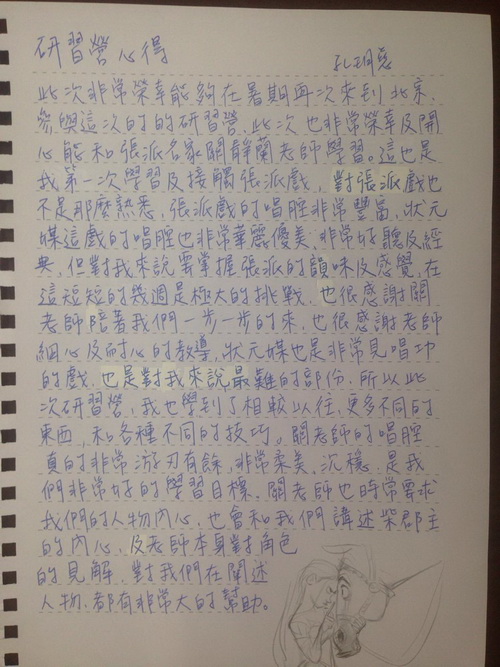 研習營心得
孔玥慈
此次非常榮幸能夠在暑期再次來到北京,
參與這次的的研習營,此次也非常榮幸及開
心能和張派名家關靜蘭老師學習。這也是
我第一次學習及接觸張派戲,對張派戲也
不是那麼熟悉,張派戲的唱腔非常豐富,狀元
媒這戲的唱腔也非常華麗優美,非常好聽及經
典,但對我來說要掌握張派的韻味及感覺,在
這短短的幾週是極大的挑戰,也很感謝關
老師陪著我們一步一步的來,也很感謝老師
細心及耐心的教導,狀元媒也是非常見唱功
的戲,也是對我來說最難的部份,所以此
次研習營,我也學到了相較以往,更多不同的
東西,和各種不同的技巧。關老師的唱腔
真的非常游刃有餘,非常柔美,沉穩,是我
們非常好的學習目標,關老師也時常要求
我們的人物內心,也會和我們講述柴郡主
的內心,及老師本身對角色
的見解,對我們在闡述
人物,都有非常大的幫助。